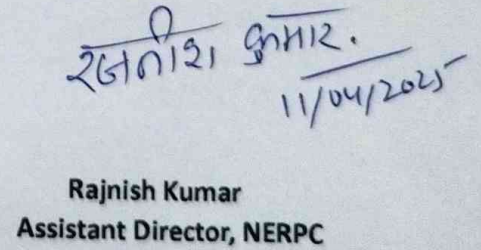 रजनीश कुमार.
11/04/2025
Rajnish Kumar
Assistant Director, NERPC